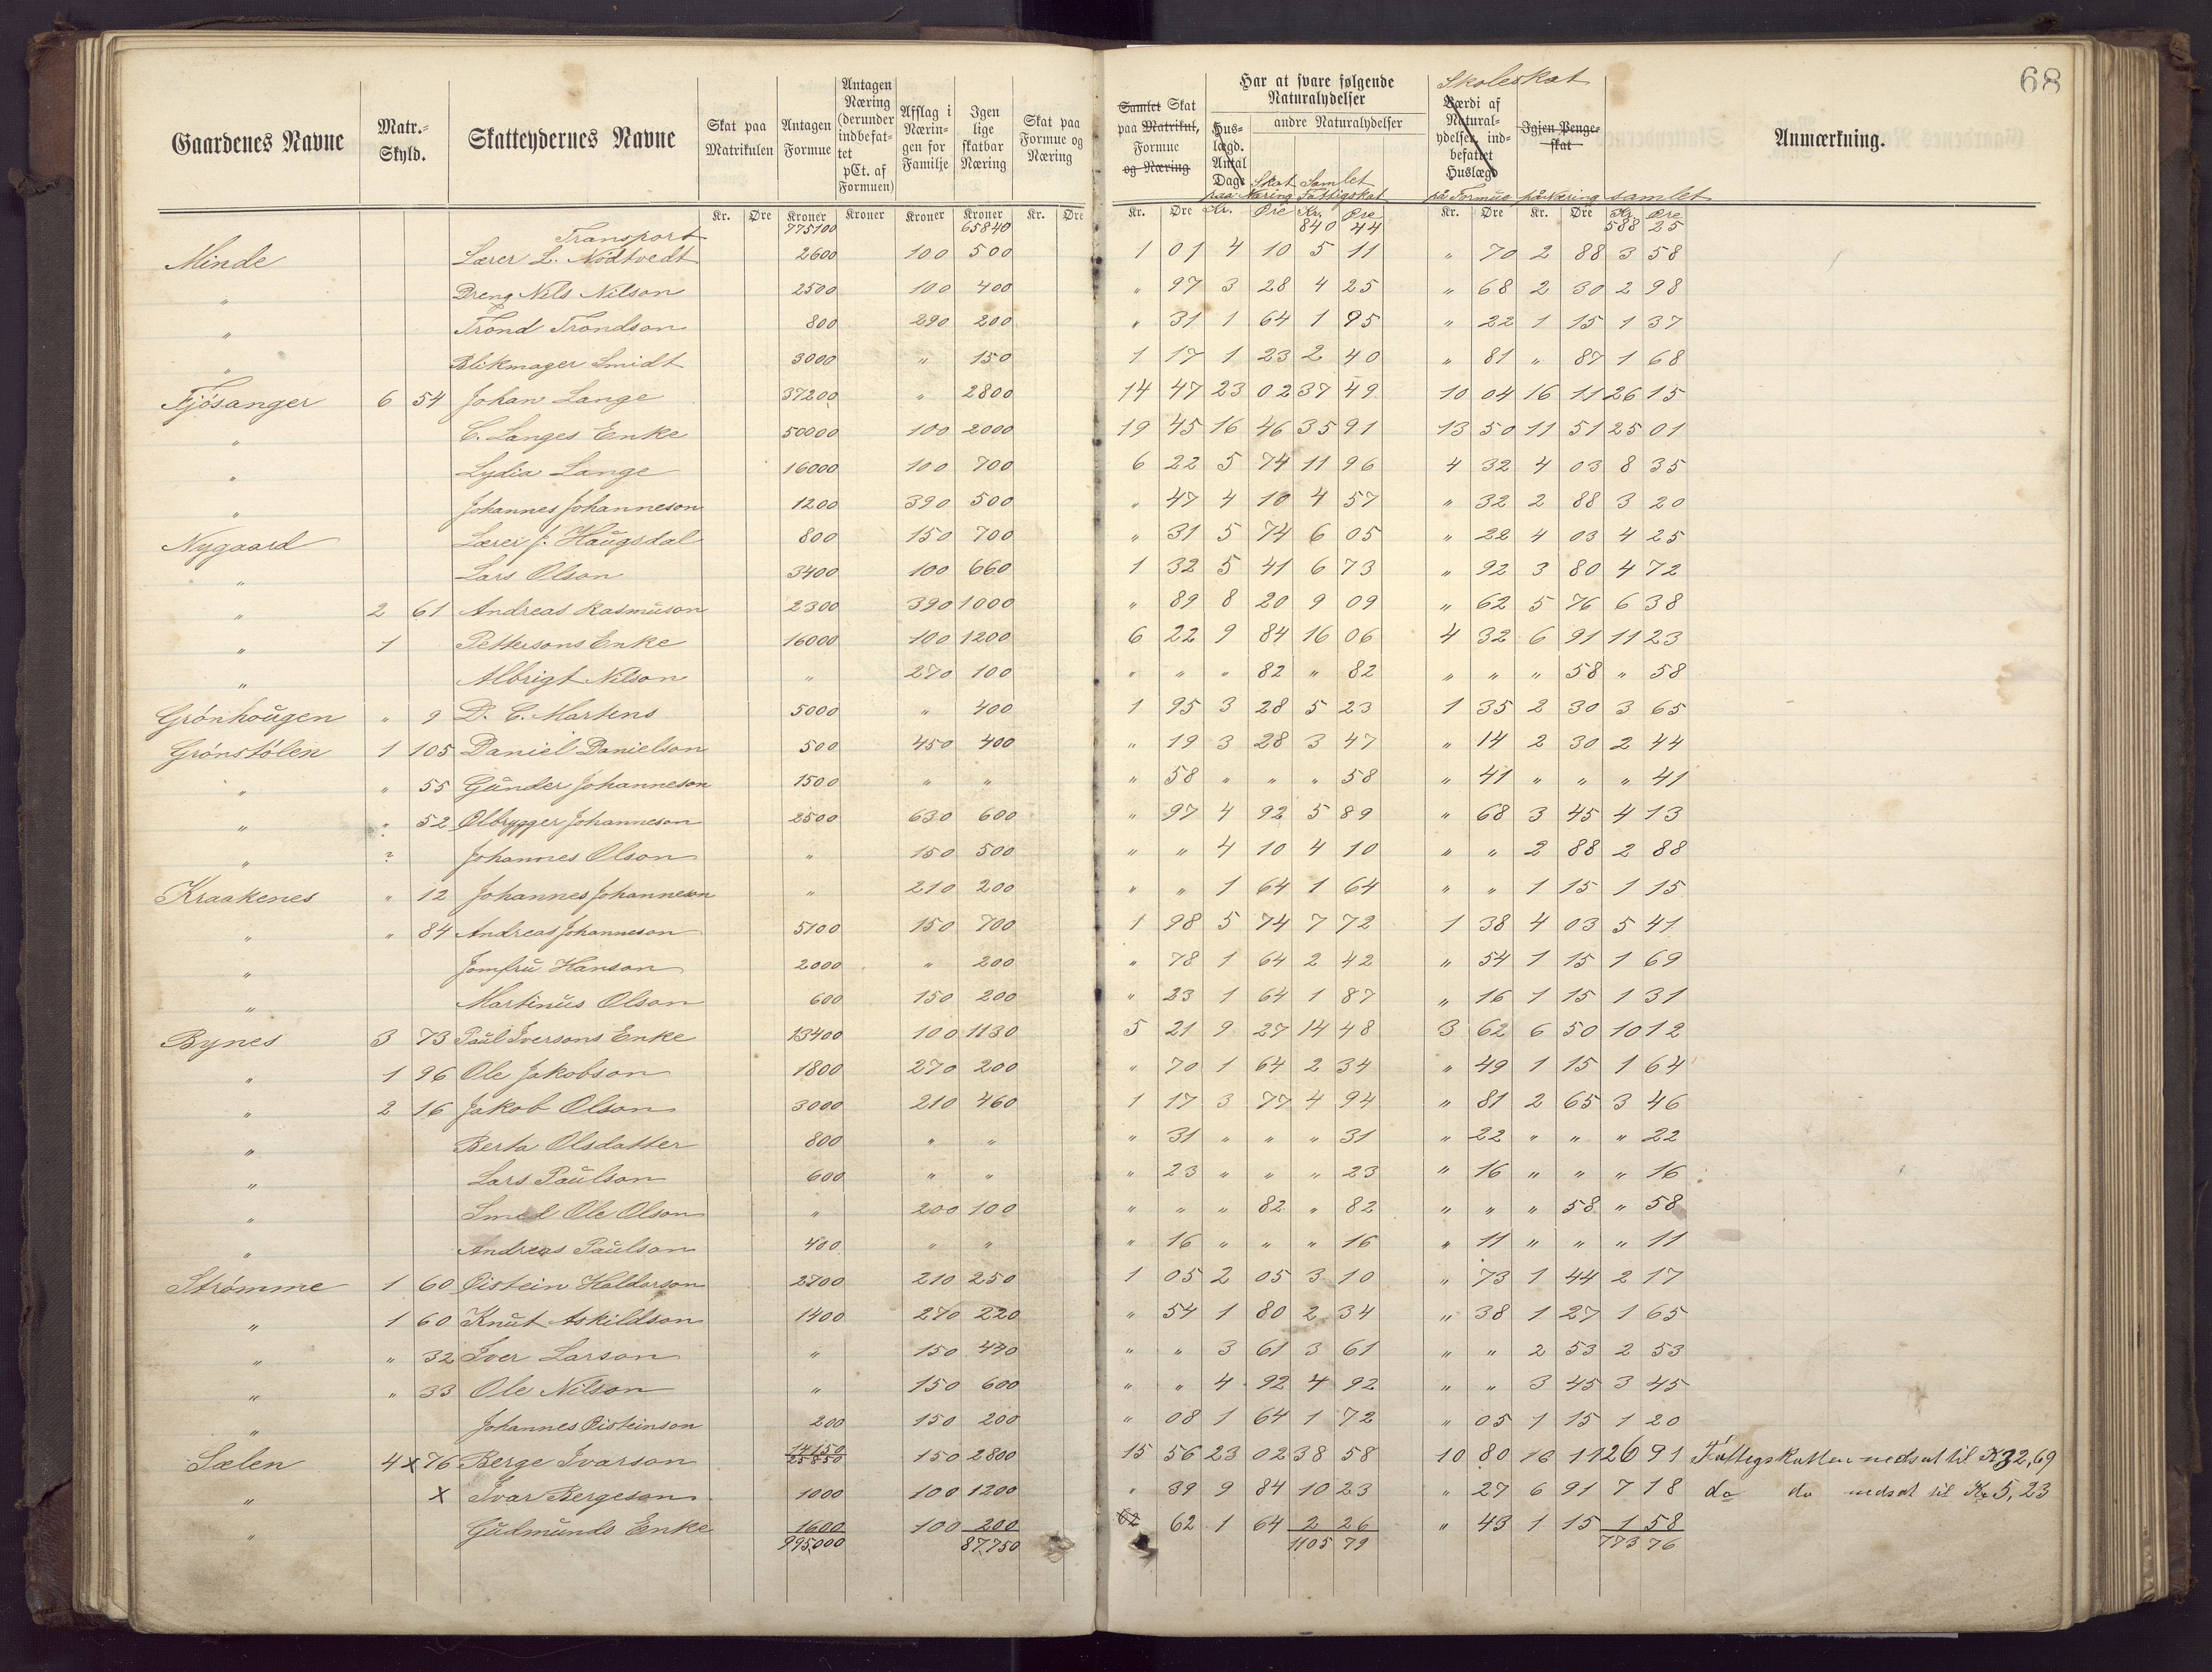 68
Gaardenes Navne | Matr.-Skyld. | Skatteydernes Navne | Skat paa Matrikulen | Antagen Formue | Antagen Næring (derunder indbefattet pCt. af Formuen) | Afslag i Næringen for Familje | Igen lige skatbar Næring | Skat paa Formue og Næring | Samlet Skat paa Matrikul, Formue og Næring | Har at svare følgende Naturalydelser | Huslægd. Antal Dage | andre Naturalydelser | Skat paa Næring | Samlet Fattigskat | Skoleskat | Værdi af Naturalydelser, indbefattet Huslægd | på Formue | Igjen Pengeskat | på Næring | samlet | Anmærkning.
Kr. Øre Kroner Kroner Kroner Kroner Kr. Øre Kr. Øre Kr. Øre Kr. Øre Kr. Øre Kr. Øre Kr. Øre
Transport 775100 65840 840 44 588 25
Minde Lærer L. Nødtvedt 2600 100 500 1 01 4 10 5 11 " 70 2 88 3 58
" Dreng Nils Nilson 2500 100 400 " 97 3 28 4 25 " 68 2 30 2 98
" Trond Trondson 800 290 200 " 31 1 64 1 95 " 22 1 15 1 37
" Blikmager Smidt 3000 " 150 1 17 1 23 2 40 " 81 " 87 1 68
Fjøsanger 6 54 Johan Lange 37200 " 2800 14 47 23 02 37 49 10 04 16 11 26 15
" C. Langes Enke 50000 100 2000 19 45 16 46 35 91 13 50 11 51 25 01
" Lydia Lange 16000 100 700 6 22 5 74 11 96 4 32 4 03 8 35
" Johannes Johanneson 1200 390 500 " 47 4 10 4 57 " 32 2 88 3 20
Nygaard Lærer J. Haugsdal 800 150 700 " 31 5 74 6 05 " 22 4 03 4 25
" Lars Olson 3400 100 660 1 32 5 41 6 73 " 92 3 80 4 72
" 2 61 Andreas Rasmuson 2300 390 1000 " 89 8 20 9 09 " 62 5 76 6 38
" 1 Pettersons Enke 16000 100 1200 6 22 9 84 16 06 4 32 6 91 11 23
" Albrigt Nilson " 270 100 " " " 82 " 82 " " " 58 " 58
Grønhougen " 9 D. C. Martens 5000 " 400 1 95 3 28 5 23 1 35 2 30 3 65
Grønstølen 1 105 Daniel Danielson 500 450 400 " 19 3 28 3 47 " 14 2 30 2 44
" " 55 Gunder Johanneson 1500 " " " 58 " " " 58 " 41 " " " 41
" " 52 Ølbrygger Johanneson 2500 630 600 " 97 4 92 5 89 " 68 3 45 4 13
" ? Johannes Olson " 150 500 " " 4 10 4 10 " " 2 88 2 88
Kraakenes " 12 Johannes Johanneson " 210 200 " " 1 64 1 64 " " 1 15 1 15
" " 84 Andreas Johanneson 5100 150 700 1 98 5 74 7 72 1 38 4 03 5 41
" Jomfru Hanson 2000 " 200 " 78 1 64 2 42 " 54 1 15 1 69
" Martinus Olson 600 150 200 " 23 1 64 1 87 " 16 1 15 1 31
Bynes 3 73 Paul Iversons Enke 13400 100 1130 5 21 9 27 14 48 3 62 6 50 10 12
" 1 96 Ole Jakobson 1800 270 200 " 70 1 64 2 34 " 49 1 15 1 64
" 2 16 Jakob Olson 3000 210 460 1 17 3 77 4 94 " 81 2 65 3 46
" Berta Olsdatter 800 " " " 31 " " " 31 " 22 " " " 22
" Lars Paulson 600 " " " 23 " " " 23 " 16 " " " 16
" Smed Ole Olson " 200 100 " " " 82 " 82 " " " 58 " 58
" Andreas Paulson 400 " " " 16 " " " 16 " 11 " " " 11
Strømme 1 60 Øistein Haldorson 2700 210 250 1 05 2 05 3 10 " 73 1 44 2 17
" 1 60 Knut Askildson 1400 270 220 " 54 1 80 2 34 " 38 1 27 1 65
" " 32 Iver Larson " 150 440 " " 3 61 3 61 " " 2 53 2 53
" " 33 Ole Nilson " 150 600 " " 4 92 4 92 " " 3 45 3 45
" Johannes Øisteinson 200 150 200 " 08 1 64 1 72 " 05 1 15 1 20
Sælen 4 x 76 Berge Ivarson 14150 25850 150 2800 15 56 23 02 38 58 10 80 16 11 26 91 Fattigskatten nedsat til K 32,69
" x Ivar Bergeson 1000 100 1200 " 39 9 84 10 23 " 27 6 91 7 18 do do nedsat til Kr 5,23
" Gudmunds Enke 1600 100 200 62 62 1 64 2 26 " 43 1 15 1 58
995000 87750 1105 79 773 76